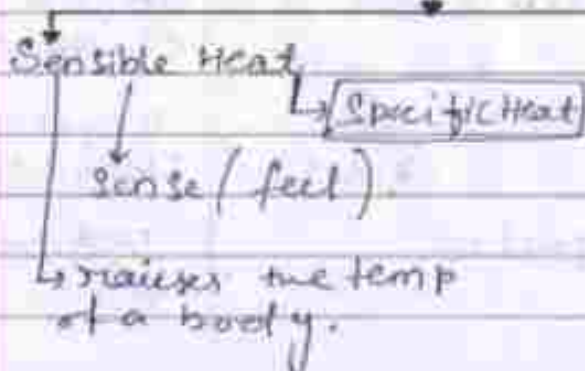 Sensible Heat
Specific Heat
Sense (feel).
raises the temp
of a body.